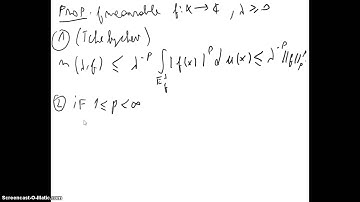 Prop. f measurable f: X → ℂ, λ > 0
① (Tchebychev)
m(λ, f) ≤ λ^{-p} ∫_{E_f^λ} |f(x)|^p dμ(x) ≤ λ^{-p} ||f||_p^p
② if 1 ≤ p < ∞
Screencast-O-Matic.com